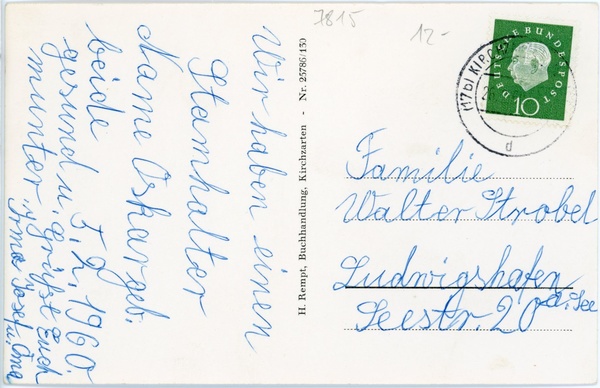 Wir haben einen
Stamhalter
Name Oskar geb.
5. 2. 1960.
beide
gesund u.
munter
grüßt Euch
Irma Josef u. Oma
H. Rempt, Buchhandlung, Kirchzarten - Nr. 25786/150
7815
12-
DEUTSCHE BUNDESPOST
10
(17b) KIRCH
d
Familie
Walter Strobel
Ludwigshafen
a. See
Seestr. 20